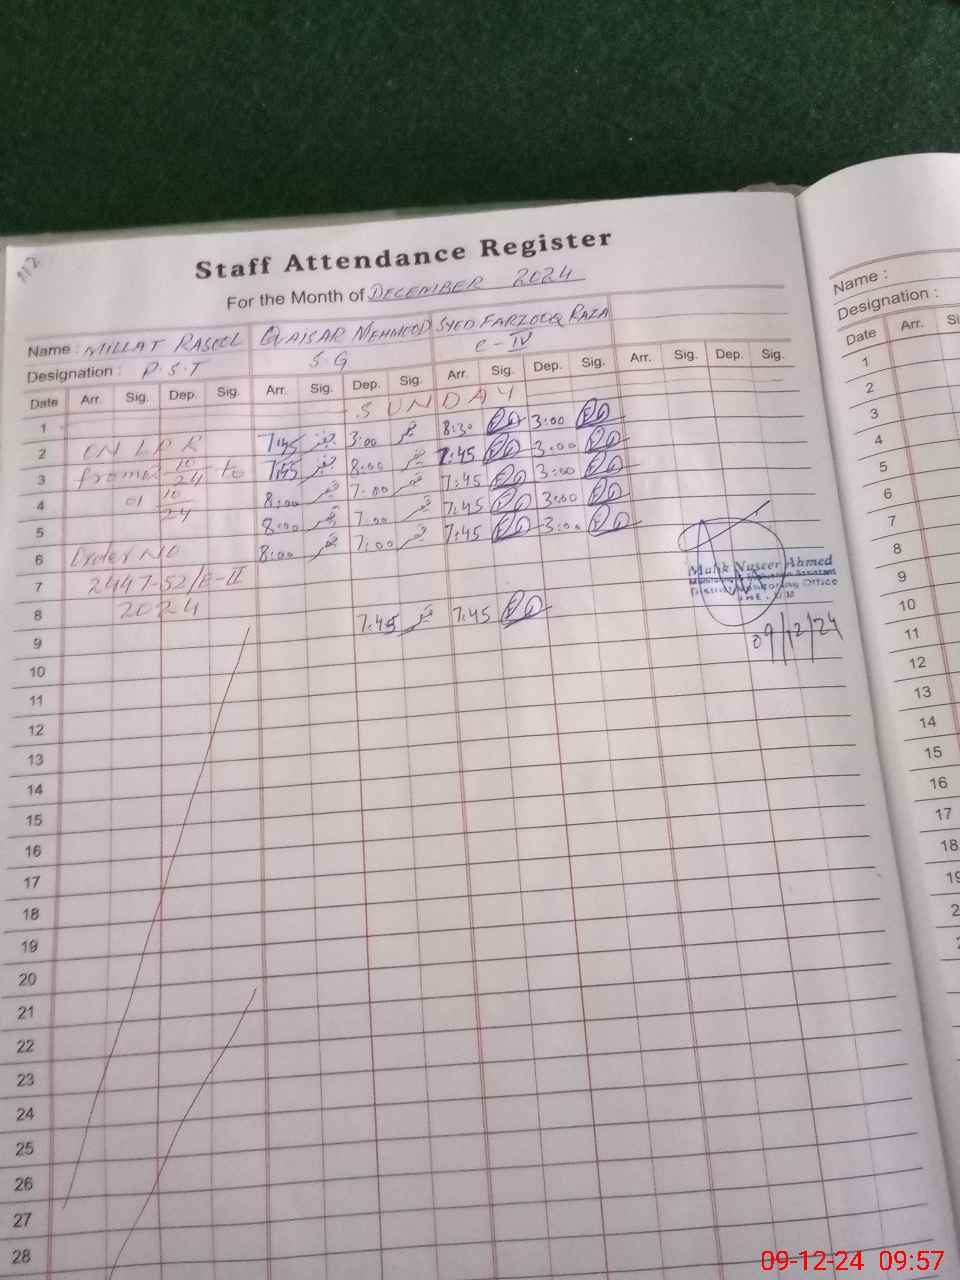 112
Staff Attendance Register
For the Month of DECEMBER 2024
Name : MILLAT RASOOL QAISAR MEHMOOD SYED FARZOOQ RAZA
Designation : P.S.T S.G C-IV
Date Arr. Sig. Dep. Sig. Arr. Sig. Dep. Sig. Arr. Sig. Dep. Sig. Arr. Sig. Dep. Sig.
1 SUNDAY
2 ON LPR 7:45 3:00 8:30 3:00
3 from 10/24 to 7:45 8:00 7:45 3:00
4 01 10/24 8:00 7:00 7:45 3:00
5 8:00 7:00 7:45 3:00
6 Order NO 8:00 7:00 7:45 3:00
7 2447-52/E-II
8 2024
9 7:45 7:45
10
11
12
13
14
15
16
17
18
19
20
21
22
23
24
25
26
27
28
Malik Naseer Ahmed
Monitoring Office
09/12/24
Name :
Designation :
Date Arr.
1
2
3
4
5
6
7
8
9
10
11
12
13
14
15
16
17
18
09-12-24 09:57